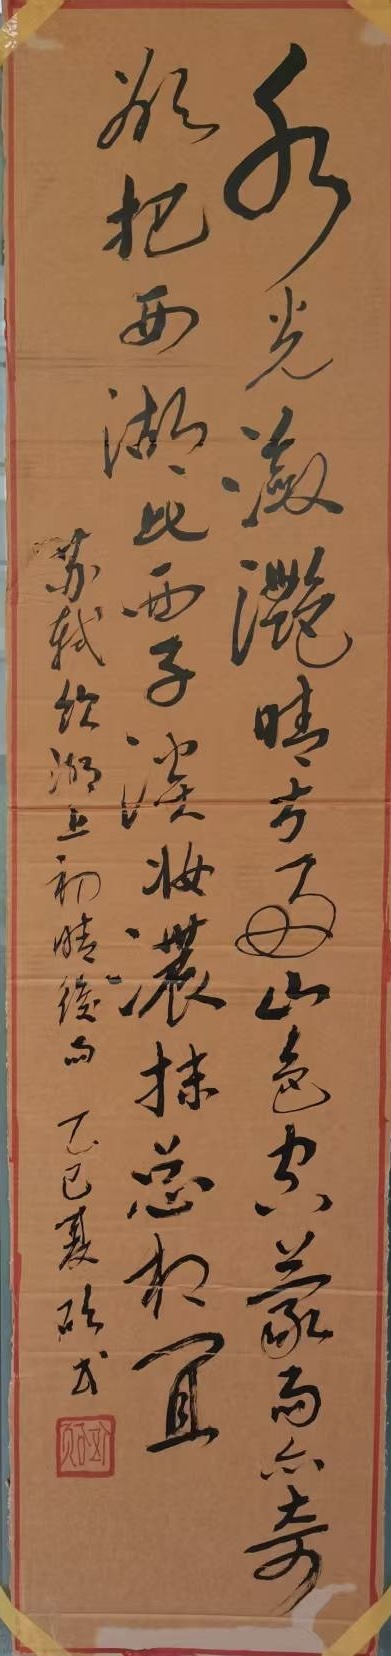 水光潋灧晴方好山色空蒙雨亦奇
欲把西湖比西子淡妆濃抹总相宜
苏轼饮湖上初晴後雨 乙巳夏